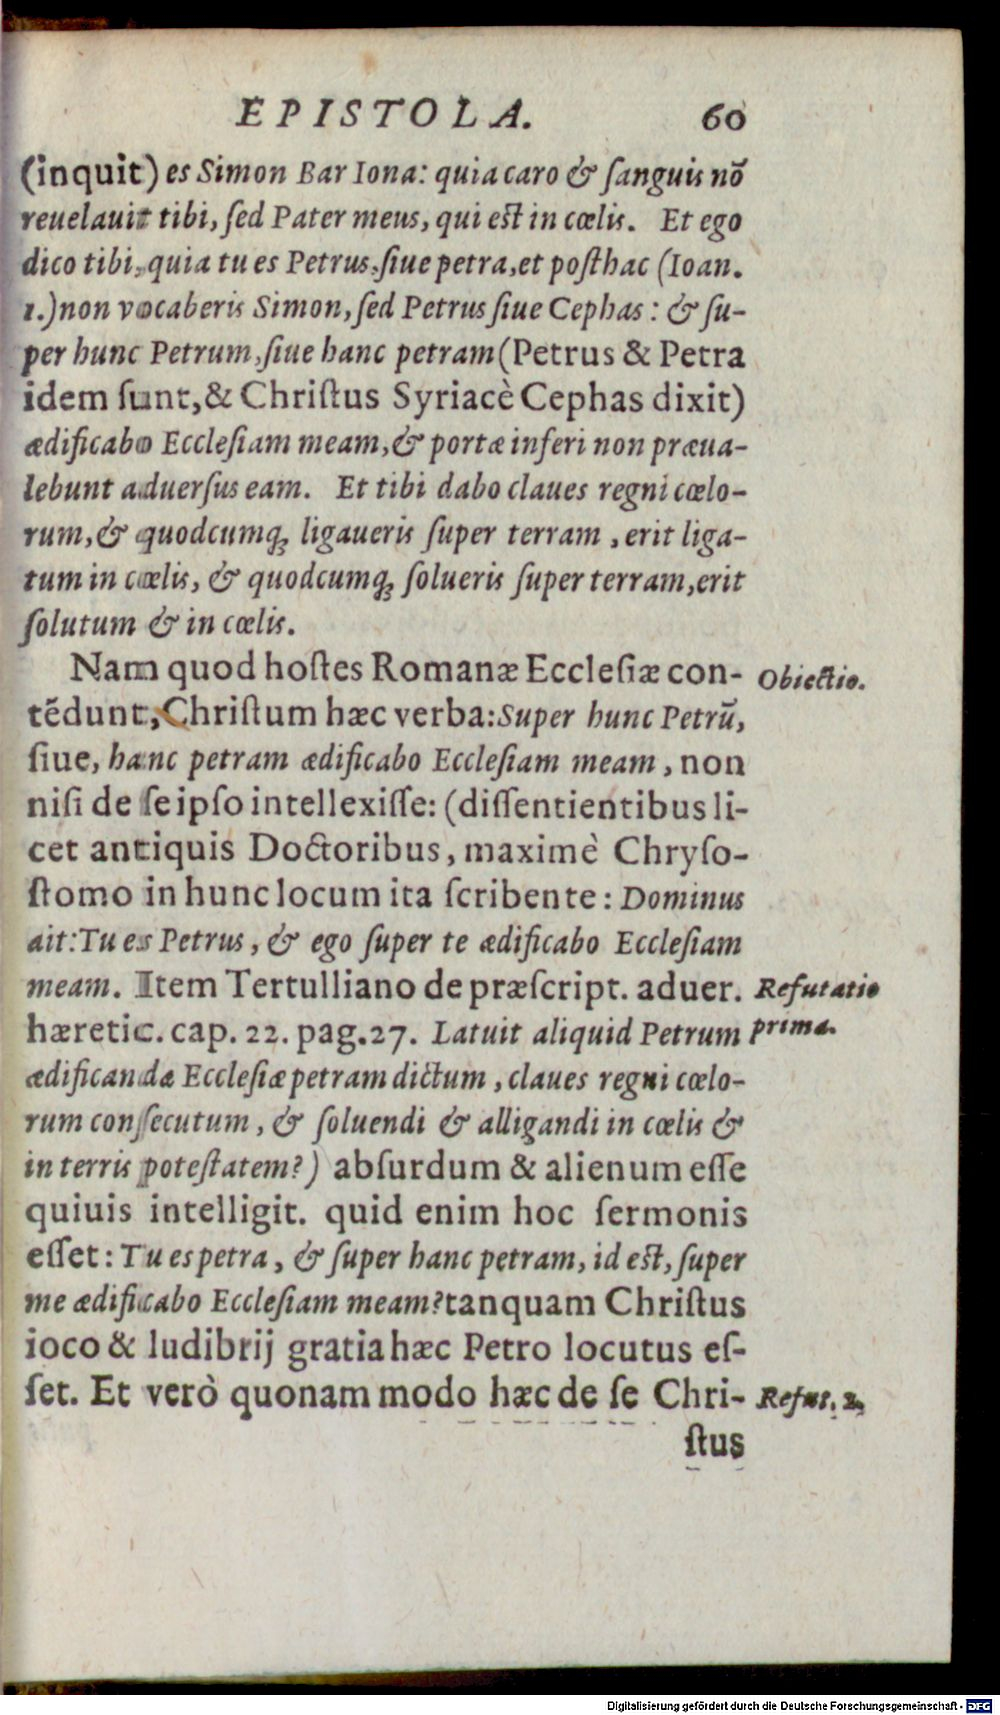 EPISTOLA. 60
(inquit) es Simon Bar Iona: quia caro & ſanguis nõ
reuelauit tibi, ſed Pater meus, qui eſt in cœlis. Et ego
dico tibi, quia tu es Petrus, ſiue petra, et poſthac (Ioan.
1.) non vocaberis Simon, ſed Petrus ſiue Cephas: & ſu-
per hunc Petrum, ſiue hanc petram (Petrus & Petra
idem ſunt, & Chriſtus Syriacè Cephas dixit)
ædificabo Eccleſiam meam, & portæ inferi non præua-
lebunt aduerſus eam. Et tibi dabo claues regni cœlo-
rum, & quodcumq; ligaueris ſuper terram, erit liga-
tum in cœlis, & quodcumq; ſolueris ſuper terram, erit
ſolutum & in cœlis.
Nam quod hoſtes Romanæ Eccleſiæ con- Obiectio.
tẽdunt, Chriſtum hæc verba: Super hunc Petrũ,
ſiue, hanc petram ædificabo Eccleſiam meam, non
niſi de ſeipſo intellexiſſe: (diſſentientibus li-
cet antiquis Doctoribus, maximè Chryſo-
ſtomo in hunc locum ita ſcribente: Dominus
ait: Tu es Petrus, & ego ſuper te ædificabo Eccleſiam
meam. Item Tertulliano de præſcript. aduer. Refutatio
hæretic. cap. 22. pag. 27. Latuit aliquid Petrum prima.
ædificandæ Eccleſiæ petram dictum, claues regni cœlo-
rum conſecutum, & ſoluendi & alligandi in cœlis &
in terris poteſtatem?) abſurdum & alienum eſſe
quiuis intelligit. quid enim hoc ſermonis
eſſet: Tu es petra, & ſuper hanc petram, id eſt, ſuper
me ædificabo Eccleſiam meam? tanquam Chriſtus
ioco & ludibrij gratia hæc Petro locutus eſ-
ſet. Et verò quonam modo hæc de ſe Chri- Refut. 2.
ſtus
Digitalisierung gefördert durch die Deutsche Forschungsgemeinschaft - DFG